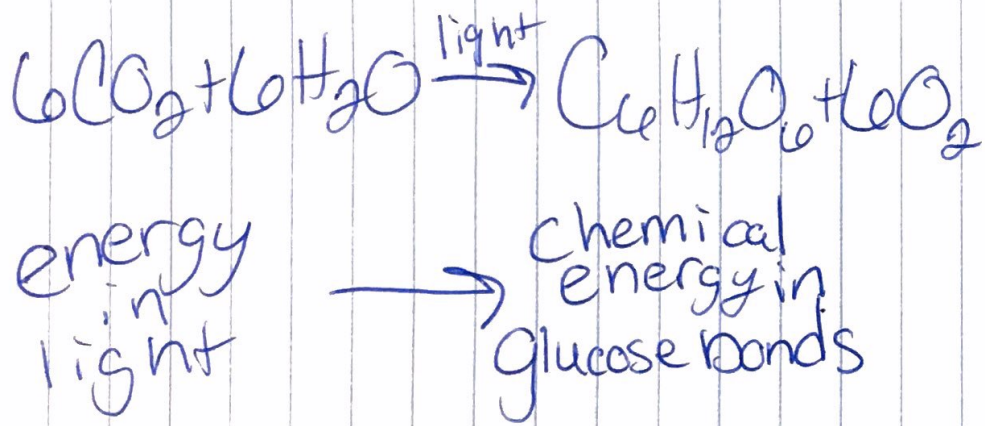 6CO₂+6H₂O light→ C₆H₁₂O₆+6O₂
energy in light → chemical energy in glucose bonds